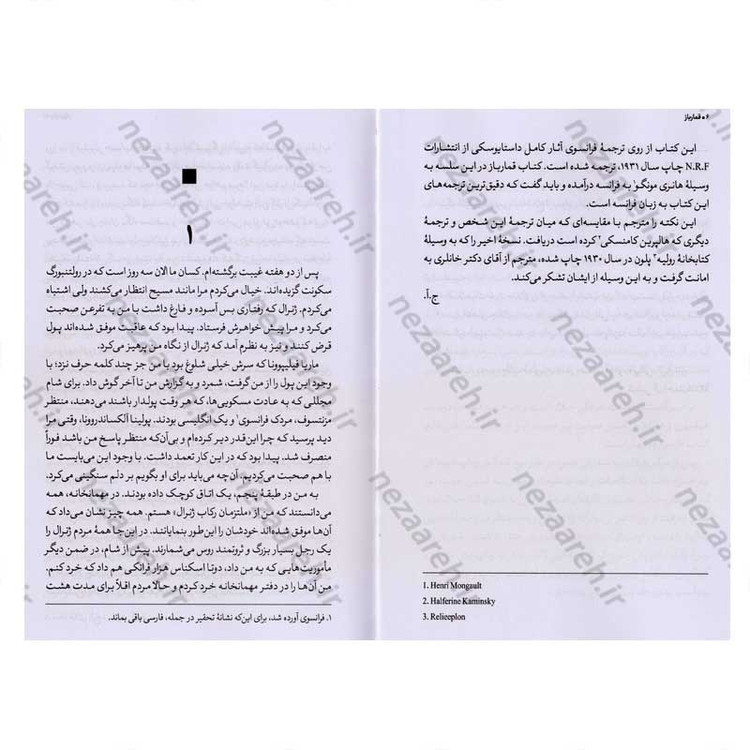 ۶ ● قمارباز
این کتاب از روی ترجمهٔ فرانسوی آثار کامل داستایوسکی از انتشارات
N.R.F چاپ سال ۱۹۳۱، ترجمه شده است. کتاب قمارباز در این سلسله به
وسیلهٔ هانری مونگو۱ به فرانسه درآمده و باید گفت که دقیق‌ترین ترجمه‌های
این کتاب به زبان فرانسه است.
این نکته را مترجم با مقایسه‌ای که میان ترجمهٔ این شخص و ترجمهٔ
دیگری که هالپرین کامنسکی۲ کرده است دریافت. نسخهٔ اخیر را که به وسیلهٔ
کتابخانهٔ رولیه۳ پلون در سال ۱۹۳۰ چاپ شده، مترجم از آقای دکتر خانلری به
امانت گرفت و به این وسیله از ایشان تشکر می‌کند.
ج.آ.
1. Henri Mongault
2. Halferine Kaminsky
3. Relieeplon
۱
پس از دو هفته غیبت برگشته‌ام. کسان ما الان سه روز است که در رولتنبورگ
سکونت گزیده‌اند. خیال می‌کردم مرا مانند مسیح انتظار می‌کشند ولی اشتباه
می‌کردم. ژنرال که رفتاری بس آسوده و فارغ داشت با من به تفرعن صحبت
می‌کرد و مرا پیش خواهرش فرستاد. پیدا بود که عاقبت موفق شده‌اند پول
قرض کنند و نیز به نظرم آمد که ژنرال از نگاه من پرهیز می‌کرد.
ماریا فیلیپوونا که سرش خیلی شلوغ بود با من جز چند کلمه حرف نزد؛ با
وجود این پول را از من گرفت، شمرد و به گزارش من تا آخر گوش داد. برای شام
مجللی که به عادت مسکویی‌ها، که هر وقت پولدار باشند می‌دهند، منتظر
مزنتسوف، مردک فرانسوی۱ و یک انگلیسی بودند. پولینا آلکساندروونا، وقتی مرا
دید پرسید که چرا این‌قدر دیر کرده‌ام و بی‌آن‌که منتظر پاسخ من باشد فوراً
منصرف شد. پیدا بود که در این کار تعمد داشت. با وجود این می‌بایست ما
با هم صحبت می‌کردیم. آن‌چه می‌باید برای او بگویم بر دلم سنگینی می‌کرد.
به من در طبقهٔ پنجم، یک اتاق کوچک داده بودند. در مهمانخانه، همه
می‌دانستند که من از «ملتزمان رکاب ژنرال» هستم. همه چیز نشان می‌داد که
آن‌ها موفق شده‌اند خودشان را این‌طور بنمایانند. در این‌جا همهٔ مردم ژنرال را
یک رجل بسیار بزرگ و ثروتمند روس می‌شمارند. پیش از شام، در ضمن دیگر
مأموریت‌هایی که به من داد، دوتا اسکناس هزار فرانکی هم داد که خرد کنم.
من آن‌ها را در دفتر مهمانخانه خرد کردم و حالا مردم اقلاً برای مدت هشت
۱. فرانسوی آورده شد، برای این‌که نشانهٔ تحقیر در جمله، فارسی باقی بماند.
nezaareh.ir
nezaareh.ir
nezaareh.ir
nezaareh.ir
nezaareh.ir
nezaareh.ir